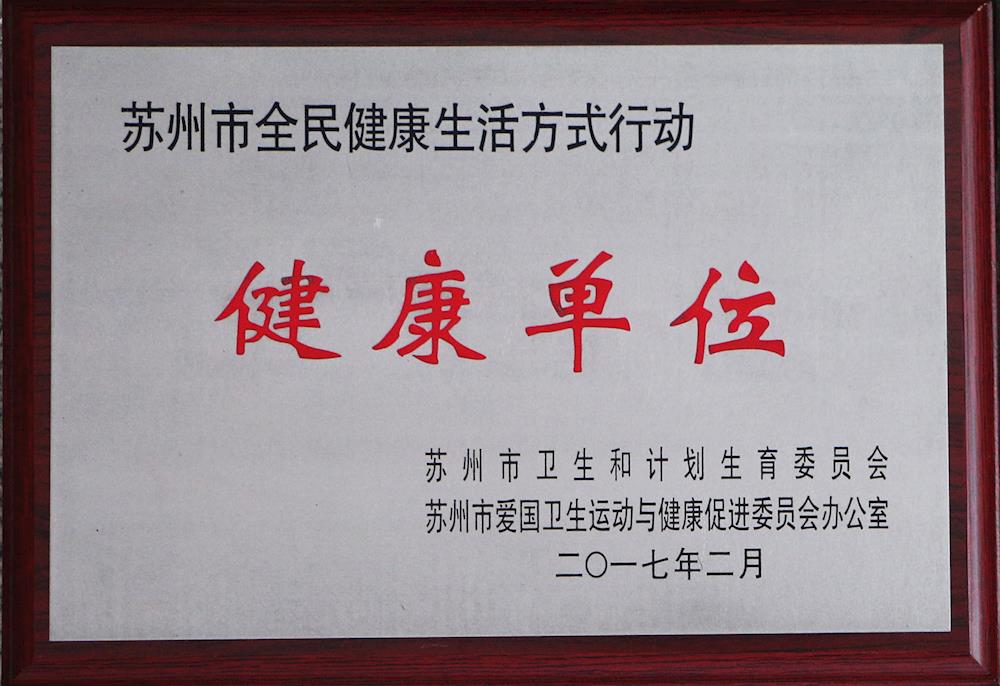 苏州市全民健康生活方式行动
健康单位
苏州市卫生和计划生育委员会
苏州市爱国卫生运动与健康促进委员会办公室
二〇一七年二月